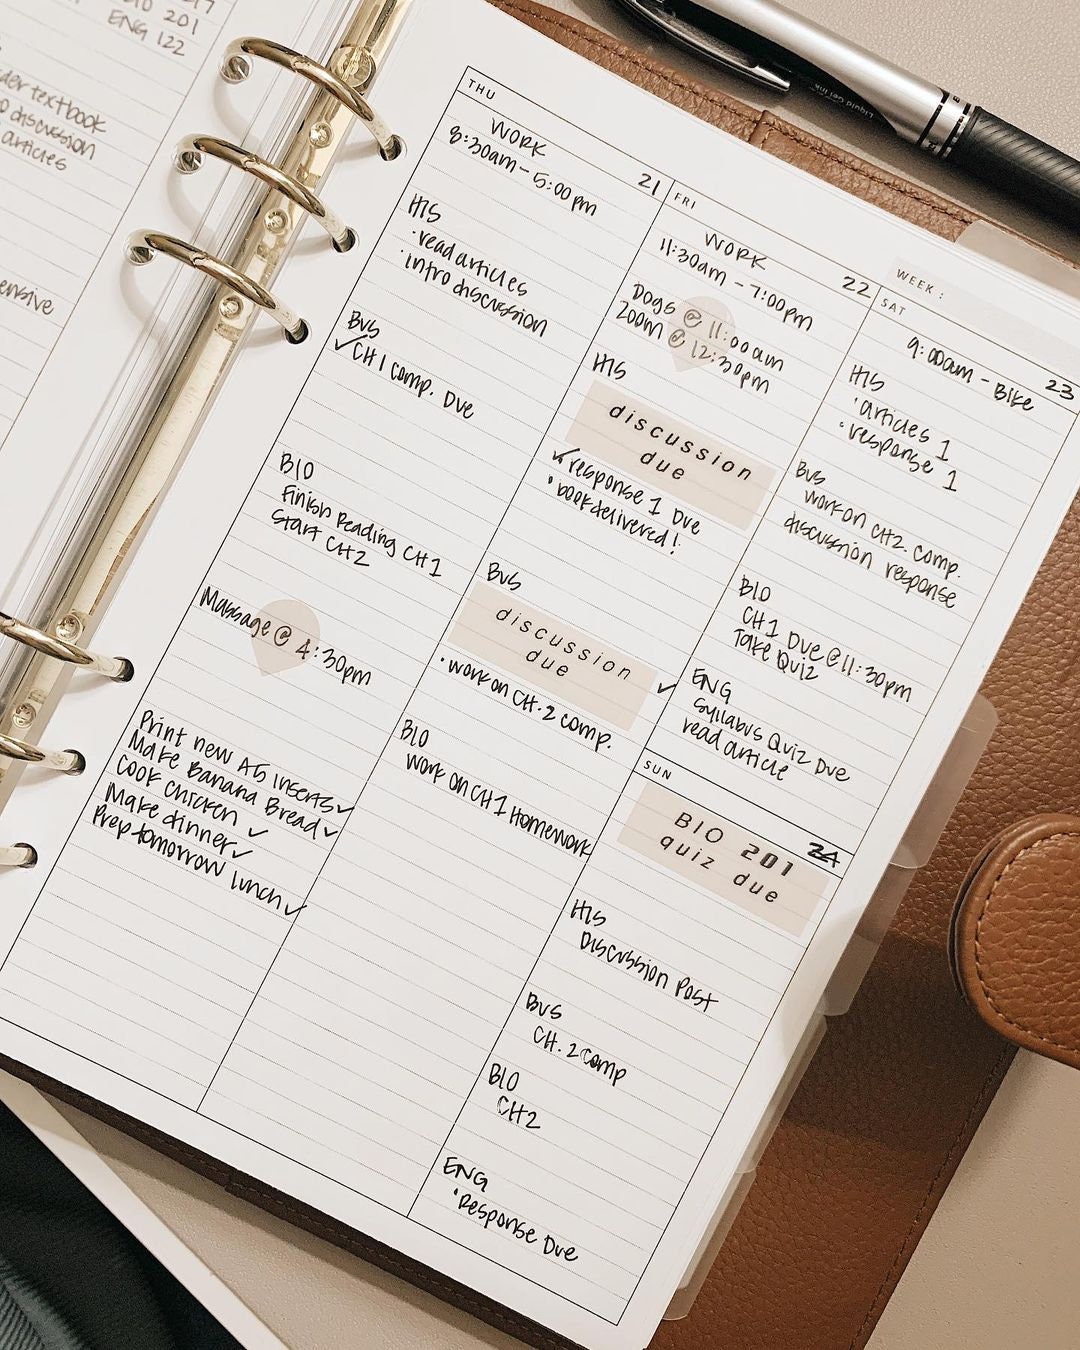 BIO 201
ENG 122
textbook
discussion
articles
THU
21
WORK
8:30am - 5:00pm
HIS
· read articles
· intro discussion
BUS
✓ CH 1 comp. Due
BIO
Finish Reading CH 1
Start CH2
Massage @ 4:30pm
Print new A5 inserts ✓
Make Banana Bread ✓
Cook Chicken ✓
Make dinner ✓
Prep tomorrow lunch ✓
FRI
22
WORK
11:30am - 7:00pm
Dogs @ 11:00am
Zoom @ 12:30pm
HIS
discussion
due
✓ response 1 Due
· book delivered!
BUS
discussion
due
· work on CH. 2 comp.
BIO
Work on CH 1 Homework
WEEK:
SAT
23
9:00am - Bike
HIS
· articles 1
· response 1
BUS
work on CH2. comp.
discussion response
BIO
CH 1 Due @ 11:30pm
Take Quiz
✓ ENG
Syllabus Quiz Due
read article
SUN
24
BIO 201
quiz due
HIS
Discussion Post
BUS
CH. 2 comp
BIO
CH2
ENG
· Response Due
Liquid Gel Ink